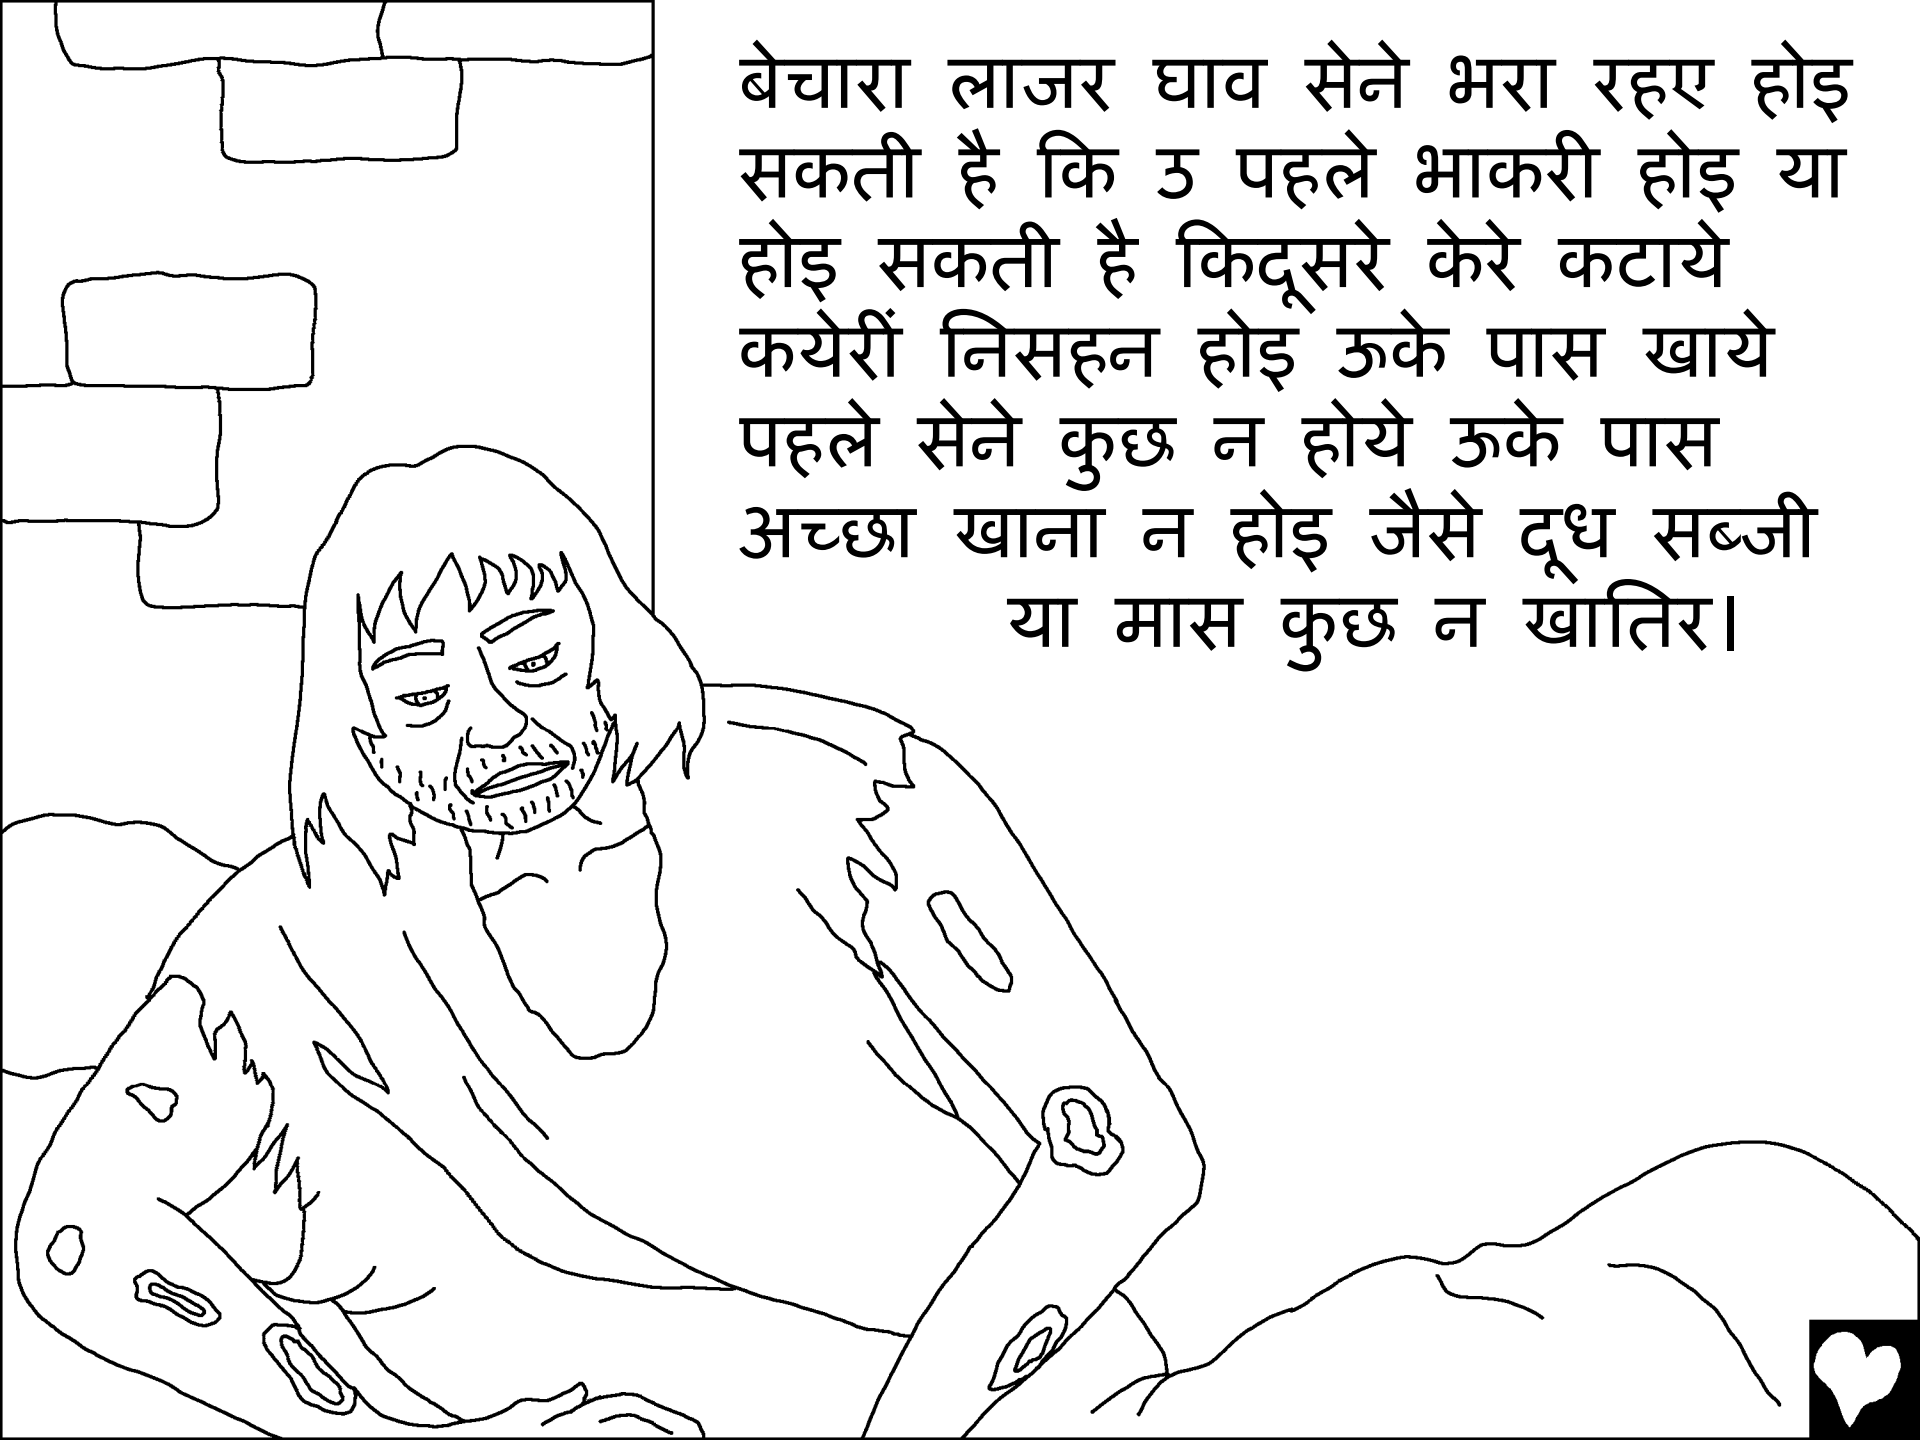 बेचारा लाजर घाव सेने भरा रहए होइ
सकती है कि उ पहले भाकरी होइ या
होइ सकती है किदूसरे केरे कटाये
कयेरीं निसहन होइ ऊके पास खाये
पहले सेने कुछ न होये ऊके पास
अच्छा खाना न होइ जैसे दूध सब्जी
या मास कुछ न खातिर।